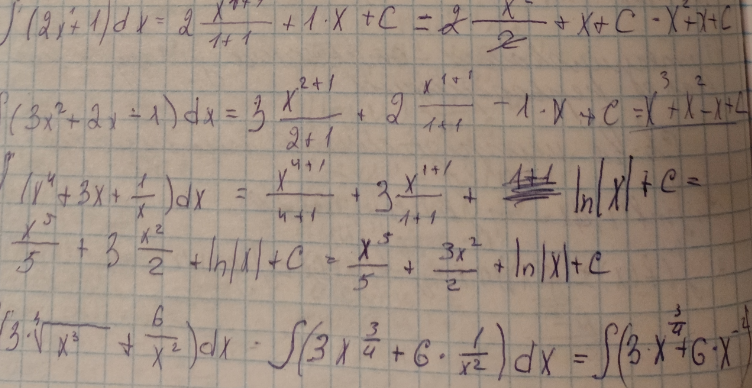 ∫(2x+1)dx = 2 x^(1+1)/(1+1) + 1·x + C = 2 x²/2 + x + C = x²+x+C
∫(3x²+2x-1)dx = 3 x^(2+1)/(2+1) + 2 x^(1+1)/(1+1) - 1·x + C = x³+x²-x+C
∫(x⁴+3x+1/x)dx = x^(4+1)/(4+1) + 3 x^(1+1)/(1+1) + ln|x| + C =
x⁵/5 + 3 x²/2 + ln|x| + C = x⁵/5 + 3x²/2 + ln|x| + C
∫(3·⁴√x³ + 6/x²)dx = ∫(3x^(3/4) + 6·1/x²)dx = ∫(3·x^(3/4)+6·x⁻²)